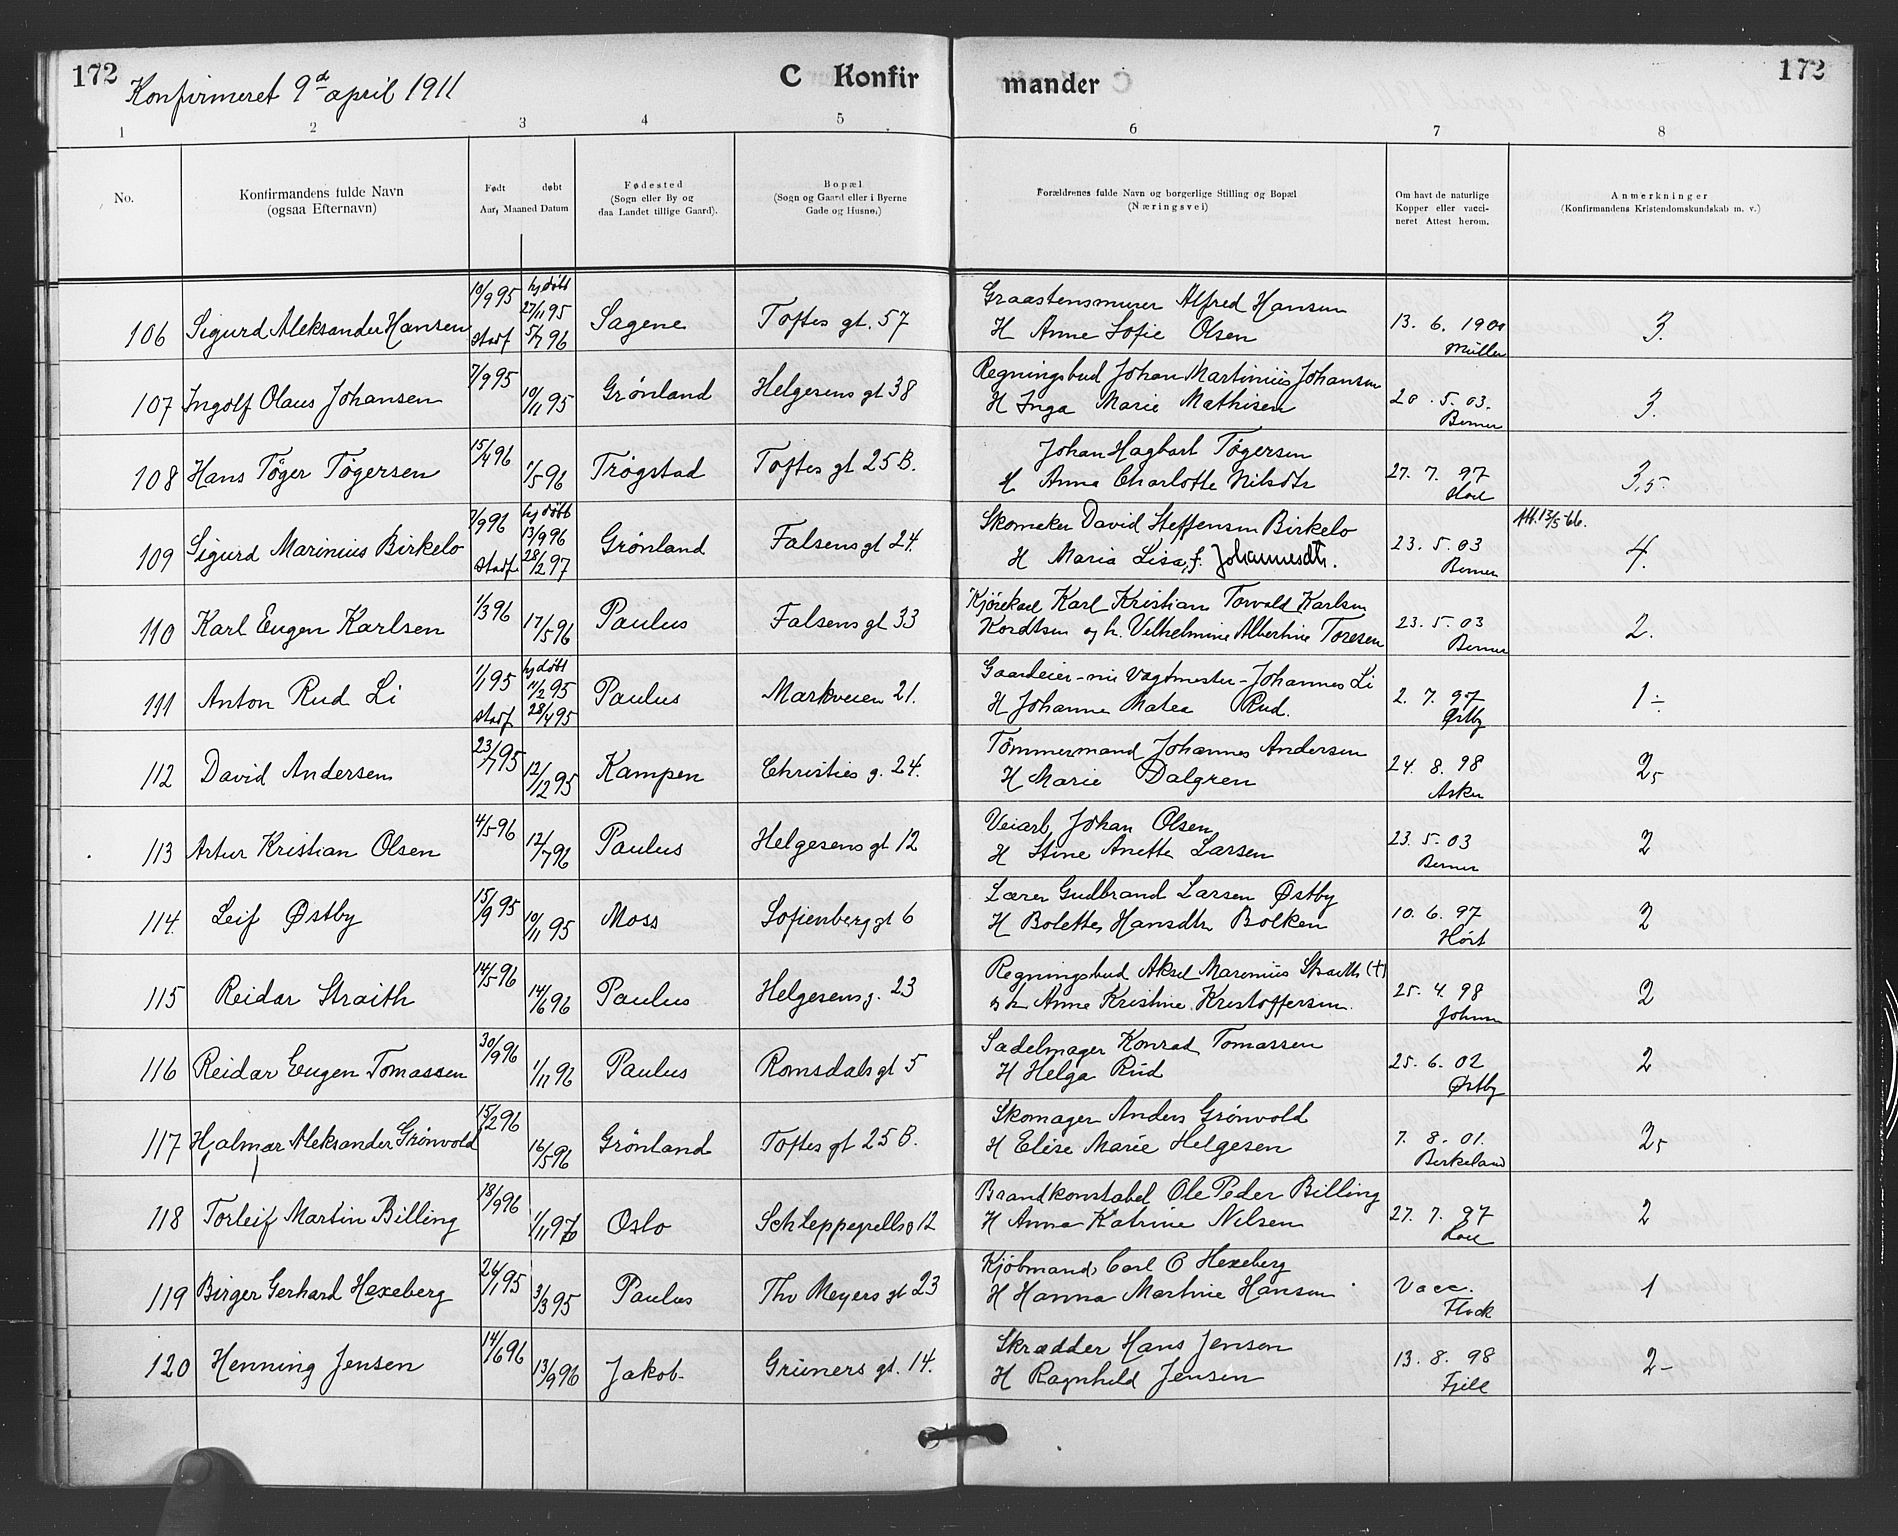 172
Konfirmeret 9d april 1911
C Konfir
mander
172
1 2 3 4 5 6 7 8
No.
Konfirmandens fulde Navn
(ogsaa Efternavn)
Født døbt
Aar, Maaned Datum
Fødested
(Sogn eller By og
daa Landet tillige Gaard).
Bopæl
(Sogn og Gaard eller i Byerne
Gade og Husno.)
Forældrenes fulde Navn og borgerlige Stilling og Bopæl
(Næringsvei)
Om havt de naturlige
Kopper eller vacci-
neret Attest herom.
Anmerkninger
(Konfirmandens Kristendomskundskab m. v.)
10/9 95 hj døbt 27/11 95 Graastensmurer Alfred Hansen
106 Sigurd Aleksander Hansen stadf 5/7 96 Sagene Toftes gt. 57 H Anne Sofie Olsen 13. 6. 1900 Müller 3.
7/9 95 Regningsbud Johan Martinius Johansen
107 Ingolf Olaus Johansen 10/11 95 Grønland Helgesens gt 38 H Inga Marie Mathisen 20. 5. 03. Berner 3.
15/4 96 Johan Hagbart Tøgersen
108 Hans Tøger Tøgersen 1/5 96 Trøgstad Toftes gt 25 B. H Anna Charlotte Nilsdtr 27. 7. 97 3,5
7/9 96 hj døbt 13/9 96 Skomaker David Steffensen Birkelo Att. 13/5-66.
109 Sigurd Marinius Birkelo stadf 28/2 97 Grønland Falsens gt 24. H Maria Lisa, f. Johannesdtr. 23. 5. 03 Berner 4.
1/3 96 Kjørekarl Karl Kristian Torvald Karlsen
110 Karl Eugen Karlsen 17/5 96 Paulus Falsens gt 33 Kordtsen og h. Vilhelmine Albertine Toresen 23. 5. 03 Berner 2.
1/1 95 hj døbt 11/2 95 Gaardeier - nu Vagtmester - Johannes Li
111 Anton Rud Li stadf 28/4 95 Paulus Markveien 21. H Johanne Matea Rud. 2. 7. 97 Østby 1 ÷
23/7 95 Tømmermand Johannes Andersen
112 David Andersen 12/12 95 Kampen Christies g. 24. H Marie Dalgren 24. 8. 98 Asker 2,5
4/5 96 Veiarb. Johan Olsen
113 Artur Kristian Olsen 12/7 96 Paulus Helgesens gt 12 H Stine Anette Larsen 23. 5. 03 Berner 2
15/9 95 Lærer Gudbrand Larsen Østby
114. Leif Østby 10/11 95 Moss Sofienberg gt 6 H Bolette Hansdtr Bolken 10. 6. 97 Høst 2
14/5 96 Regningsbud Aksel Marinius Straith (+)
115 Reidar Straith 14/6 96 Paulus Helgesens g. 23 og h Anne Kristine Kristoffersen. 25. 4. 98 2
30/9 96 Sadelmager Konrad Tomassen
116 Reidar Eugen Tomassen 1/11 96 Paulus Romsdals gt 5 H Helga Rud 25. 6. 02 Østby 2
15/2 96 Skomager Anders Grønvold
117 Hjalmar Aleksander Grønvold 16/5 96 Grønland Toftes gt 25 B. H Elise Marie Helgesen 7. 8. 01. Birkeland 2,5
18/9 96 Brandkonstabel Ole Peder Billing
118 Torleif Martin Billing 1/1 97 Oslo Schleppegrells g 12 H Anna Katrine Nilsen 27. 7. 97 2
26/1 95 Kjøbmand Carl O Hexeberg
119 Birger Gerhard Hexeberg 3/3 95 Paulus Th Meyers gt 23 H Hanna Martine Hansen Vacc. Flock 1
14/6 96 Skrædder Hans Jensen
120 Henning Jensen 13/9 96 Jakob Grüners gt. 14. H Ragnhild Jensen 13. 8. 98 Fjell 2-